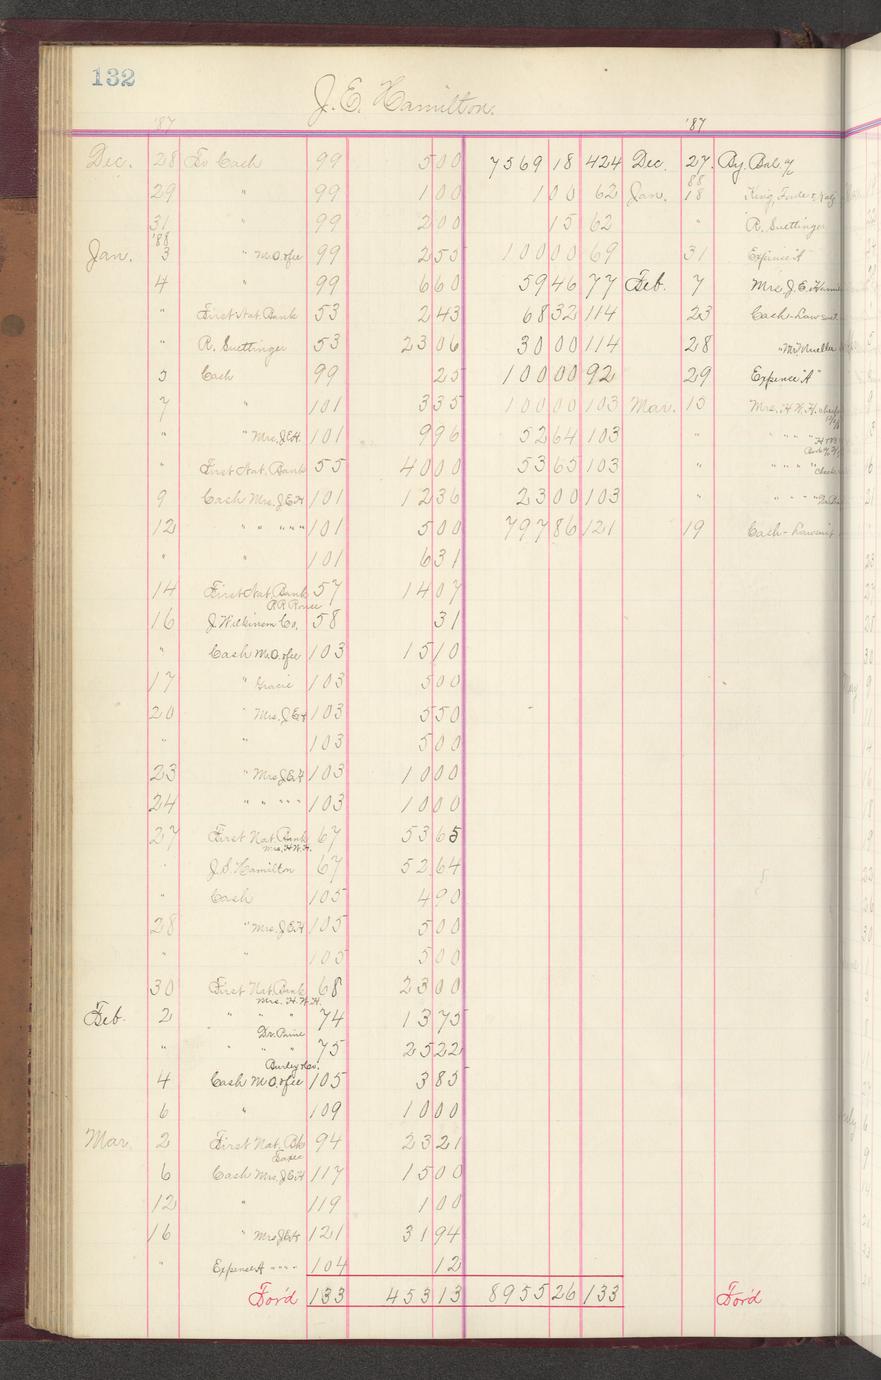 132
J. E. Hamilton.
'87 '87
Dec. 28 To Cash 99 5 00 7569 18 424 Dec. 27. By. Bal. %
29 " 99 1 00 1 00 62 Jan. '88 18 King,
31 " 99 2 00 15 62 " R. Suettinger
Jan. '88 3 " M.O. & fee 99 2 55 100 00 69 31 Expense "A"
4 " 99 6 60 59 46 77 Feb. 7 Mrs. J. E.
" First Nat. Bank 53 2 43 68 32 114 23 Cash - Lawsuit
" R. Suettinger 53 23 06 30 00 114 28 " Mr. Mueller
5 Cash 99 25 100 00 92 29 Expense "A"
7 " 101 3 35 100 00 103 Mar. 15 Mrs. H. W. H.
" " Mrs. J.E.H. 101 9 96 52 64 103 " " " " "
" First Nat. Bank 55 40 00 53 65 103 " " " " "
9 Cash Mrs. J.E.H 101 12 36 23 00 103 " " " " "
12 " " " " " 101 5 00 797 86 121 19 Cash - Lawsuit
" " 101 6 31
14 First Nat. Bank 57 14 07
16 J. Wilkinson Co. 58 31
" Cash M.O. & fee 103 15 10
17 " Gracie 103 5 00
20 " Mrs. J.E.H 103 5 50
" " 103 5 00
23 " Mrs. J.E.H 103 10 00
24 " " " " " 103 10 00
27 First Nat. Bank 67 53 65
Mrs. H.W.H.
" J.S. Hamilton 67 52 64
" Cash 105 4 90
28 " Mrs. J.E.H 105 5 00
" " 105 5 00
30 First Nat. Bank 68 23 00
Mrs. H.W.H.
Feb. 2 " " " 74 13 75
" " " " 75 25 22
4 Cash M.O. & fee 105 3 85
6 " 109 10 00
Mar. 2 First Nat. Bk 94 23 21
Taxes
6 Cash Mrs. J.E.H 117 15 00
12 " 119 1 00
16 " Mrs J.E.H 121 31 94
" Expense A " " " " 104 12
For'd 133 453 13 8955 26 133 For'd